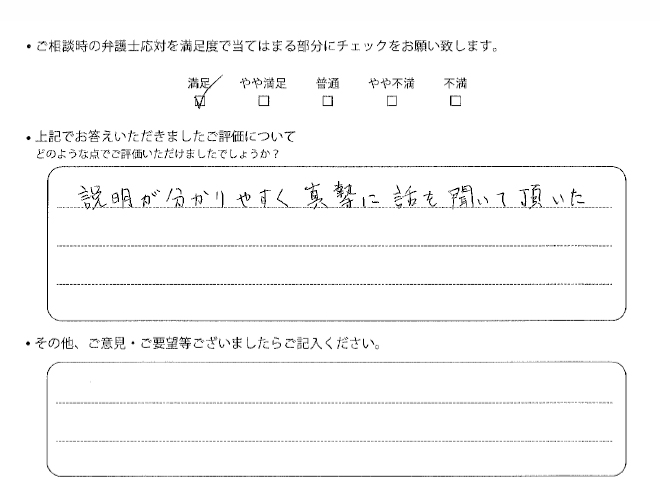 ・ご相談時の弁護士応対を満足度で当てはまる部分にチェックをお願い致します。
満足 やや満足 普通 やや不満 不満
☑ □ □ □ □
・上記でお答えいただきましたご評価について
どのような点でご評価いただけましたでしょうか？
説明が分かりやすく真摯に話を聞いて頂いた
・その他、ご意見・ご要望等ございましたらご記入ください。